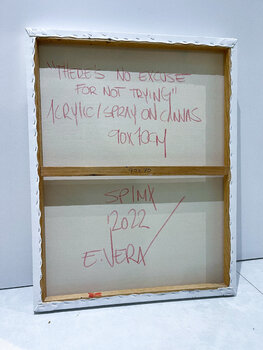 "THERE'S NO EXCUSE
FOR NOT TRYING"
ACRYLIC/SPRAY ON CANVAS
90X70CM
SPIMX
2022
E.VERA